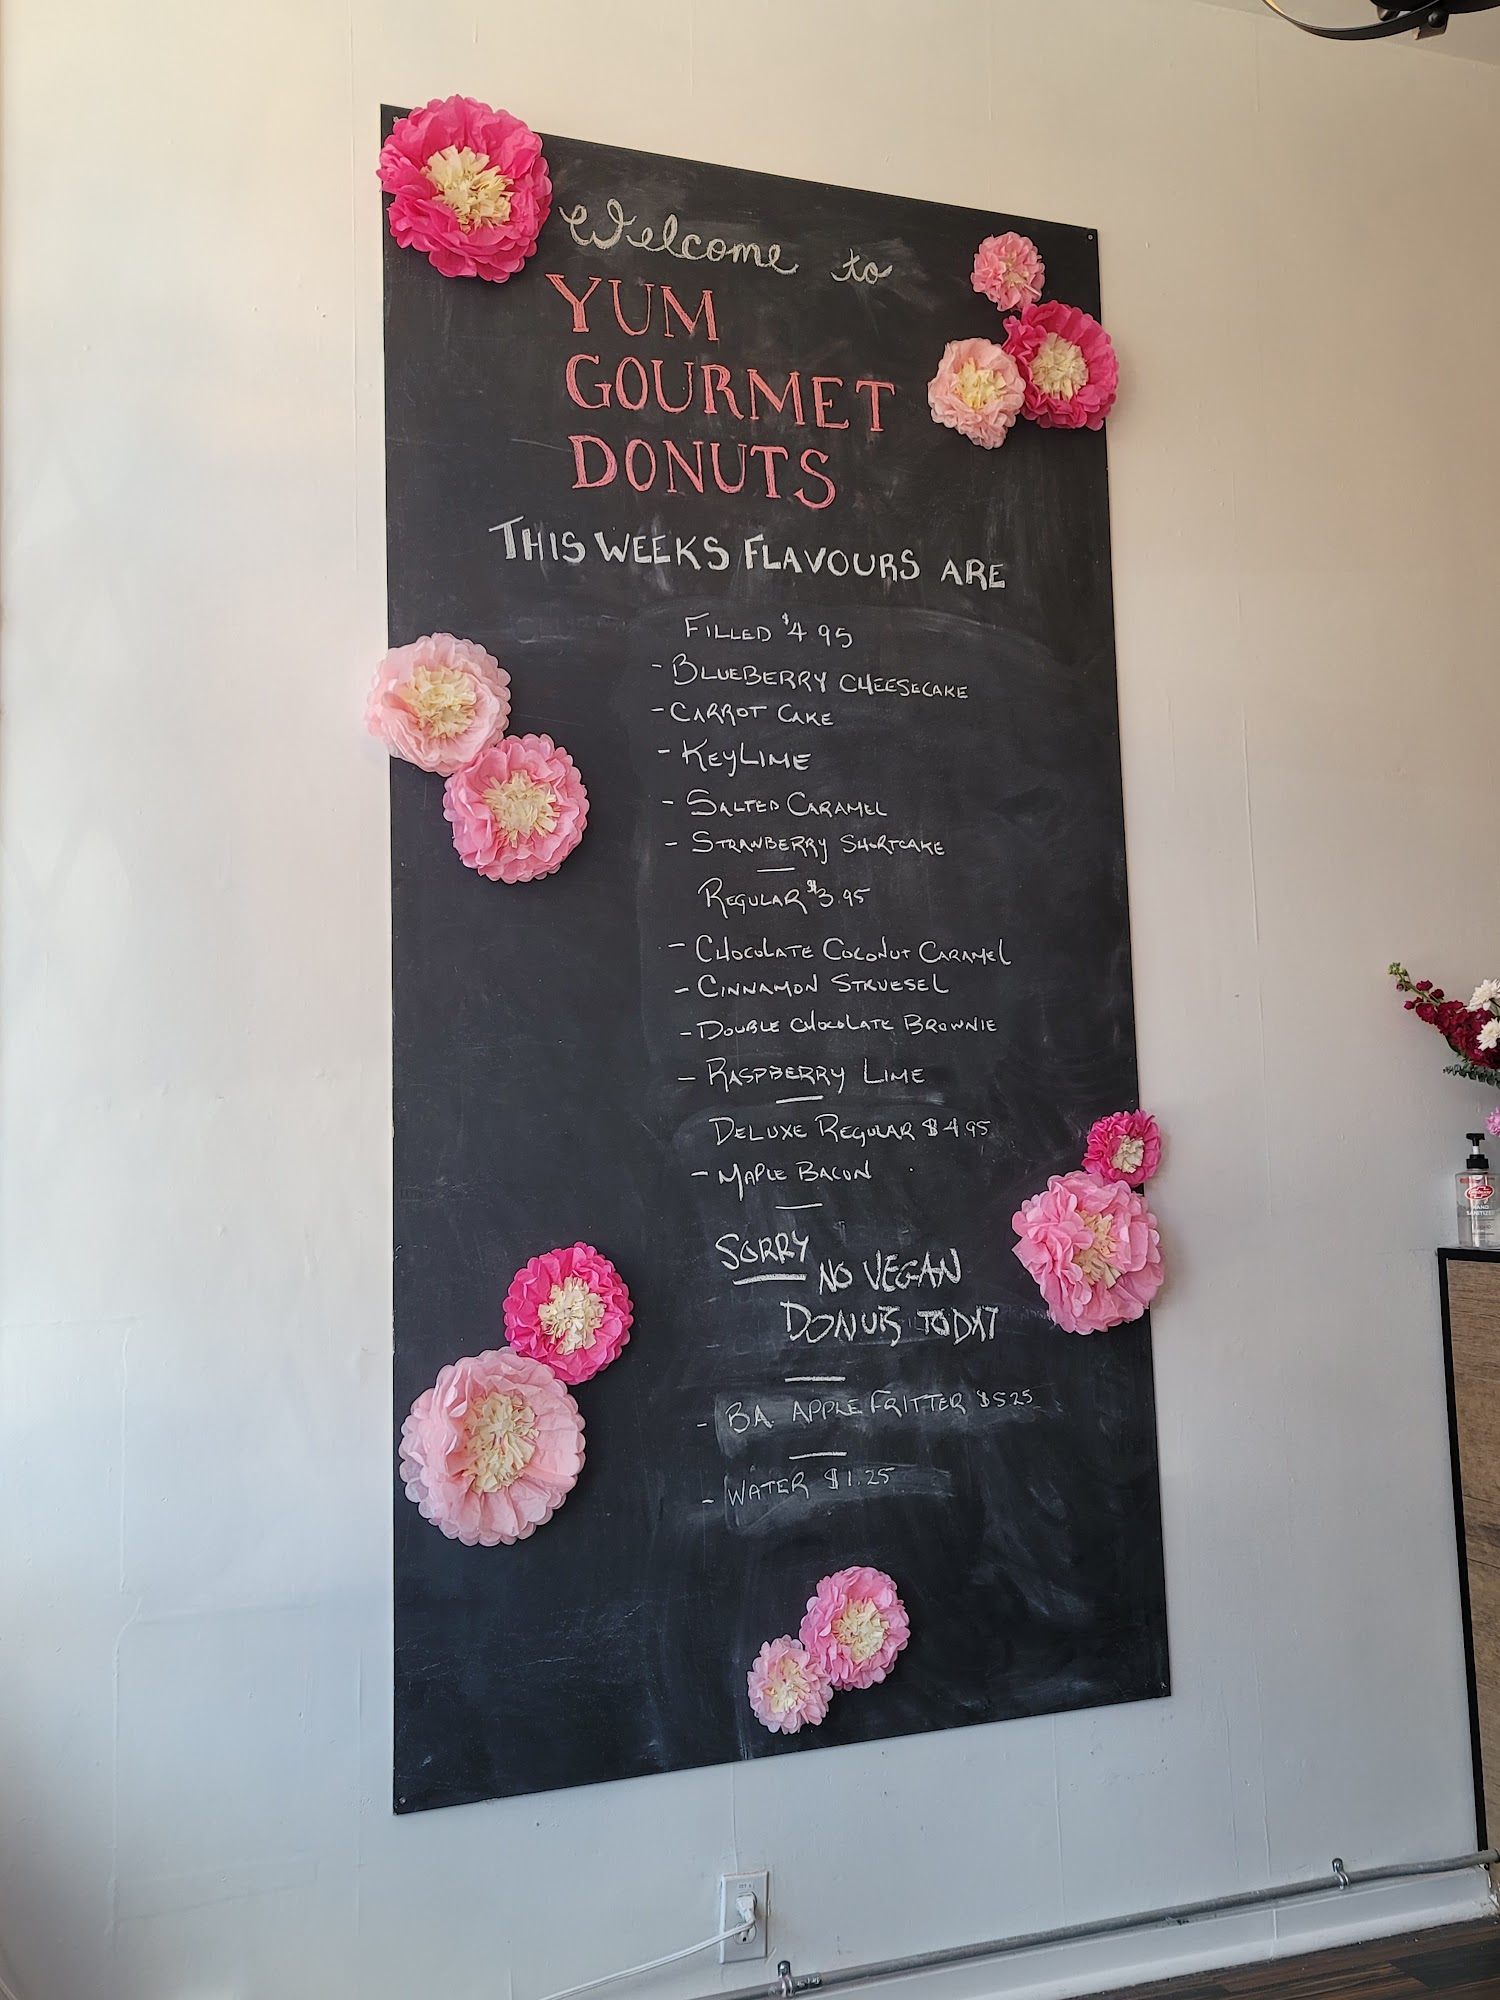 Welcome to
YUM
GOURMET
DONUTS
THIS WEEKS FLAVOURS ARE
FILLED $4.95
- BLUEBERRY CHEESECAKE
- CARROT CAKE
- KEYLIME
- SALTED CARAMEL
- STRAWBERRY SHORTCAKE
REGULAR $3.95
- CHOCOLATE COCONUT CARAMEL
- CINNAMON STRUESEL
- DOUBLE CHOCOLATE BROWNIE
- RASPBERRY LIME
DELUXE REGULAR $4.95
- MAPLE BACON
SORRY
NO VEGAN
DONUTS TODAY
- BA. APPLE FRITTER $5.25
- WATER $1.25
HAND
SANITIZER